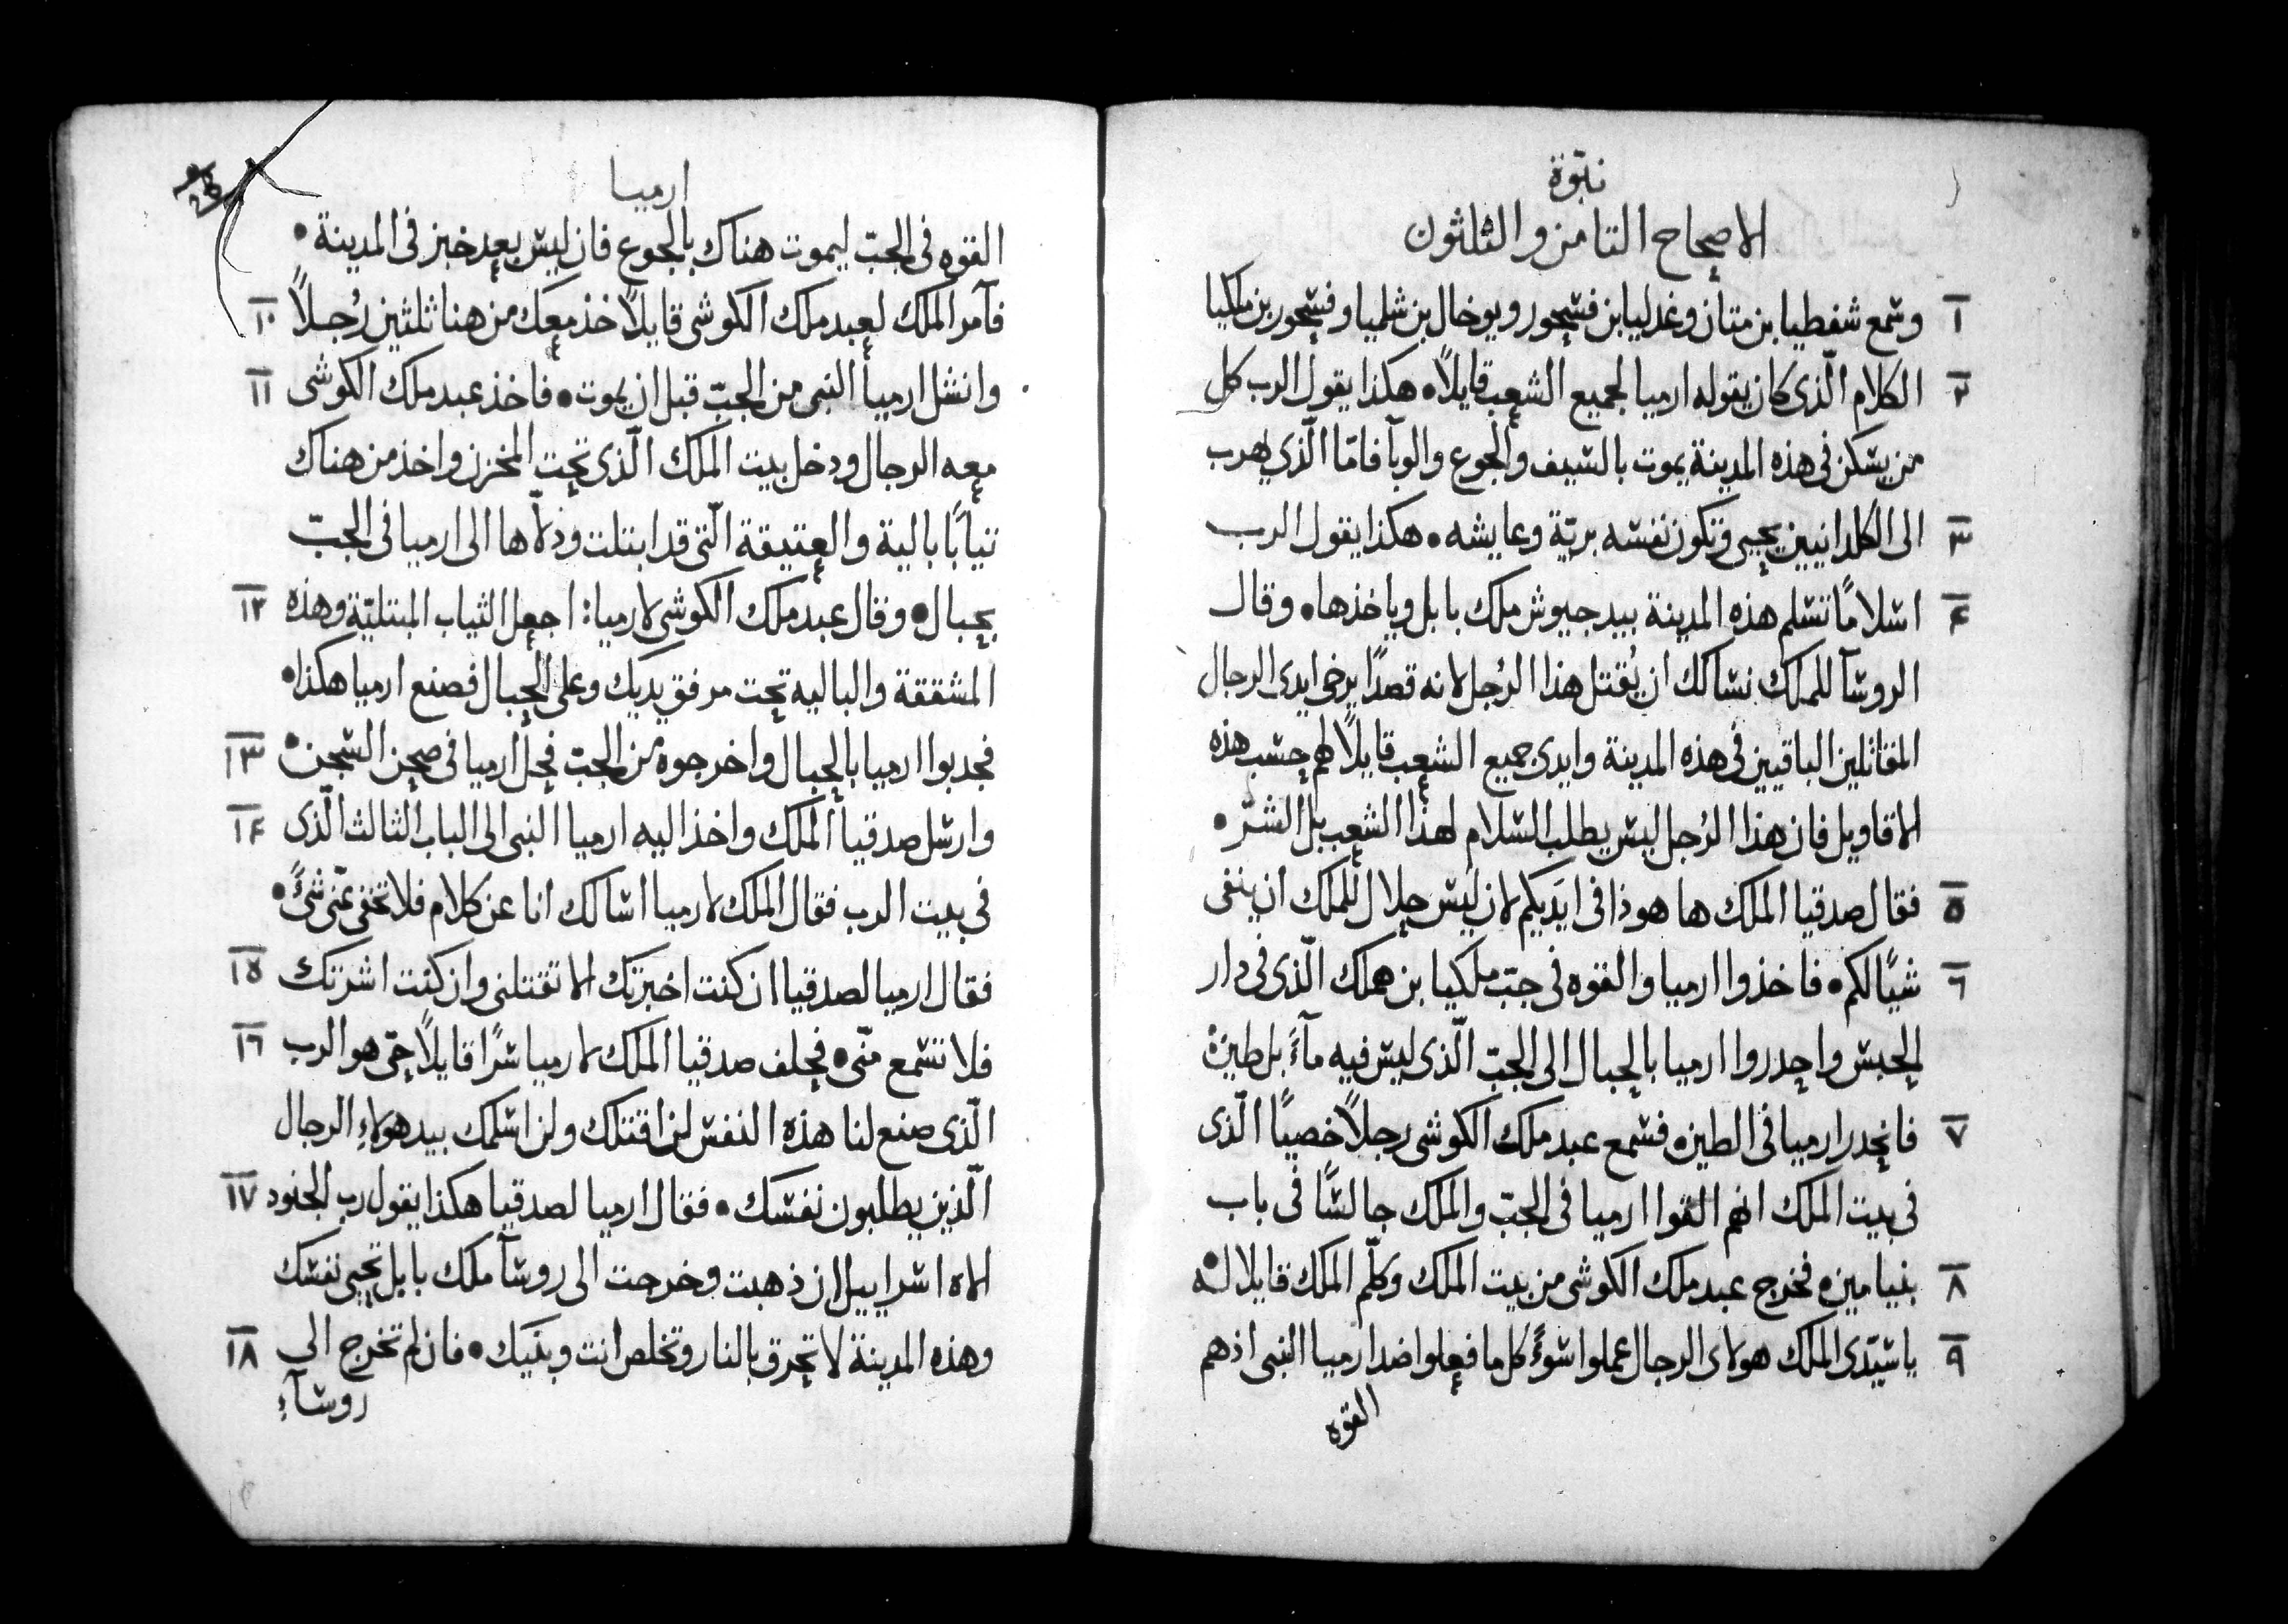 نبوّة
الاصحاح الثامن والثلثون
١ وسمع شفطيا بن متان وغدليا بن فسحور ويوخال بن شلميا وفسحور بن ملكيا
٢ الكلام الّذى كان يقوله ارميا لجميع الشعب قايلاً • هكذا يقول الرب كل
من يسكن فى هذه المدينة يموت بالسيف والجوع والوبآ فامّا الّذي يهرب
٣ الى الكلدانيين يحيى وتكون نفسه بريّة وعايشه • هكذا يقول الرب
۴ اسلامًا تسلم هذه المدينة بيد جيوش ملك بابل وياخذها • وقال
الروسآ للملك نسالك ان يُقتل هذا الرُجل لانه قصدًا يرخى ايدى الرجال
المقاتلين الباقيين فى هذه المدينة وايدى جميع الشعب قايلاً لهم حسب هذه
الاقاويل فان هذا الرُجل ليس يطلب السلام لهذا الشعب بل الشرّ •
٥ فقال صدقيا الملك ها هوذا فى ايديكم لان ليس حلال للملك ان ينفى
٦ شيًا لكم • فاخذوا ارميا والقوه فى جب ملكيا بن هملك الّذى فى دار
الحبس واحدروا ارميا بالحبال الى الجبّ الّذى ليس فيه مآءً بل طين •
٧ فانحدر ارميا فى الطين • فسمع عبد ملك الكوشى رجلاً خصيًا الّذى
فى بيت الملك انهم القوا ارميا فى الجبّ والملك جالسًا فى باب
٨ بنيامين • فخرج عبد ملك الكوشى من بيت الملك وكلّم الملك قايلا له •
٩ يا سيّدى الملك هولاى الرجال عملوا سوءً كل ما فعلوا ضد ارميا النبى اذ هم
القوه
ارميا
القوه فى الجبّ ليموت هناك بالجوع فان ليس بعد خبز فى المدينة •
١٠ فآمر الملك لعبد ملك الكوشى قايلاً خذ معك من هنا ثلثين رُجلاً
١١ وانشل ارميا النبى من الجبّ قبل ان يموت • فاخذ عبد ملك الكوشى
معه الرجال ودخل بيت الملك الّذى تحت المخزن واخذ من هناك
ثيابًا بالية والعتيقة الّتى قد ابتلت ودلّاها الى ارميا فى الجبّ
١٢ بحبال • وقال عبد ملك الكوشى لارميا : اجعل الثياب المبتليّة وهذه
المشققة والباليه تحت مرفق يديك وعلى الحبال فصنع ارميا هكذا •
١٣ فجدبوا ارميا بالحبال واخرجوه من الجب فحل ارميا فى صحن السجن •
١۴ وارسل صدقيا الملك واخذ اليه ارميا النبى الى الباب الثالث الّذى
فى بيت الرب فقال الملك لارميا اسالك انا عن كلام فلا تخفى عنّى شىً •
١٥ فقال ارميا لصدقيا ان كنت اخبرتك الا تقتلنى وان كنت اشرتك
١٦ فلا تسمع منّى • فحلف صدقيا الملك لارميا سرًا قايلاً حىّ هو الرب
الّذى صنع لنا هذه النفس لن اقتلك ولن اسلمك بيد هولاءِ الرجال
١٧ الّذين يطلبون نفسك • فقال ارميا لصدقيا هكذا يقول رب الجنود
الاه اسراييل ان ذهبت وخرجت الى روسآ ملك بابل تحيى نفسك
١٨ وهذه المدينة لا تحرق بالنار وتخلص انت وبنيك • فان لم تخرج الى
روسآءِ